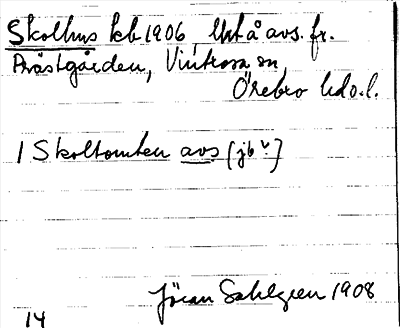 Skolhus kb 1906, lht å avs. fr.
Prästgården, Vintrosa sn
Örebro hd o. l.
1 Skoltomten avs (jb v)
Jöran Sahlgren 1908
14